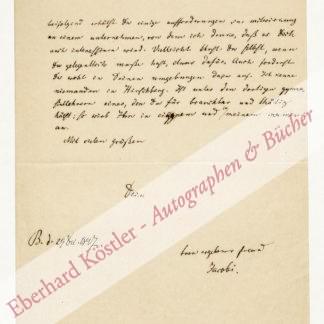 beifolgend erhältst du einige aufforderungen zur mitwirkung
an einem unternehmen, von dem ich denke, daß es dich
auch interessiren wird. Vielleicht thust du selbst, wenn
du gelegentlich muße hast, etwas dafür. Auch forderst
du wohl in Deiner umgebung dazu auf. Ich kenne
niemanden in Hirschberg. Ist unter den dortigen gymna
siallehrern einer, den du für brauchbar und thätig
hältst: so wirb ihn in eignem und meinem namen
an.
Mit vielen grüßen
Dein
B. d. 29
treu ergebener freund
Jacobi.
Eberhard Köstler - Autographen & Bücher